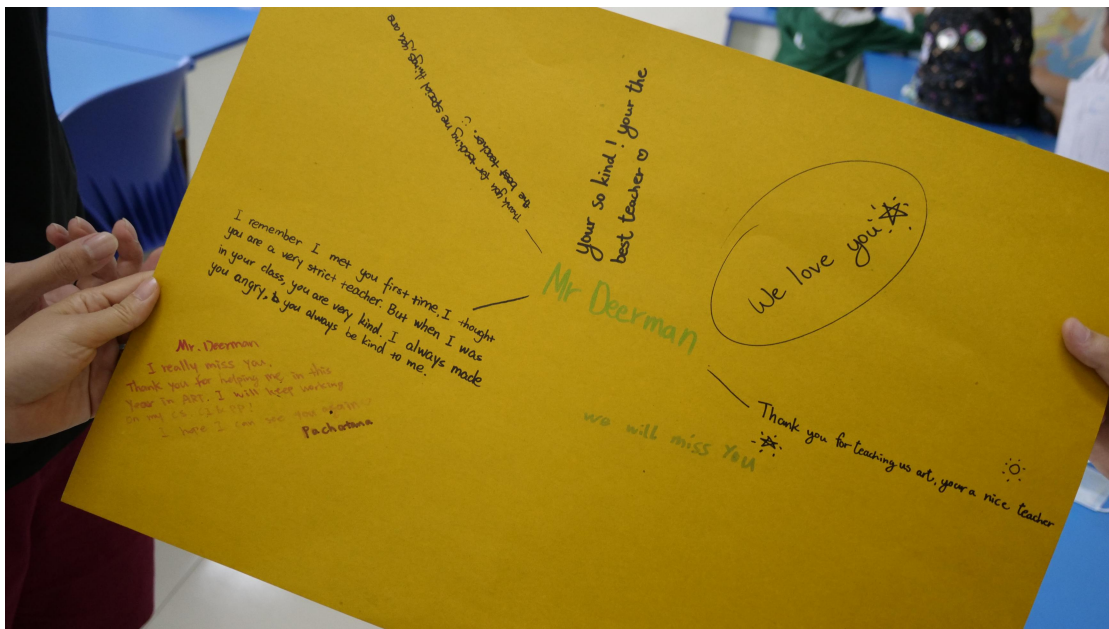 Thank you for teaching me special things, you are
the best teacher. :)
your so kind! your the
best teacher ♡
We love you ☆
I remember I met you first time, I thought
you are a very strict teacher. But when I was
in your class, you are very kind. I always made
you angry, b you always be kind to me.
Mr Deerman
Mr. Deerman
I really miss you.
Thank you for helping me in this
Year in ART. I will keep working
on my
I hope I can see you again
Pachatana
we will miss You
Thank you for teaching us art, your a nice teacher